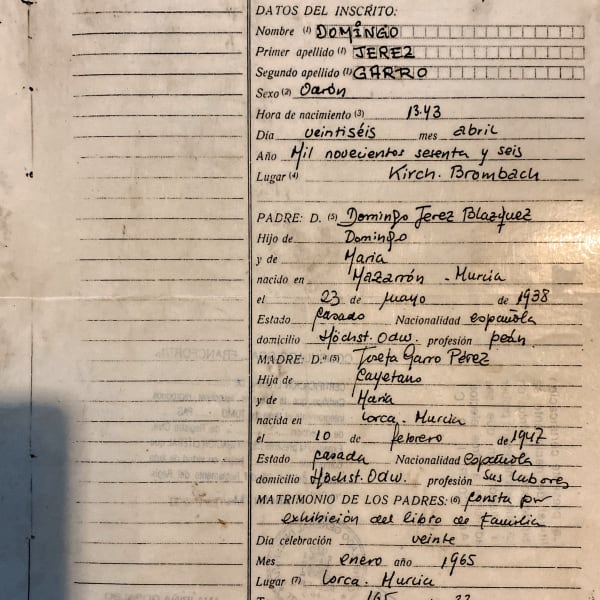 DATOS DEL INSCRITO:
Nombre (1) DOMINGO
Primer apellido (1) JEREZ
Segundo apellido (1) GARRO
Sexo (2) Varón
Hora de nacimiento (3) 13.43
Día veintiséis mes abril
Año Mil novecientos sesenta y seis
Lugar (4) Kirch. Brombach
PADRE: D. (5) Domingo Jerez Blazquez
Hijo de Domingo
y de Maria
nacido en Mazarrón - Murcia
el 23 de mayo de 1938
Estado casado Nacionalidad española
domicilio Höchst. Odw. profesión peón
MADRE: D.ª (5) Josefa Garro Pérez
Hija de Cayetano
y de Maria
nacida en Lorca - Murcia
el 10 de febrero de 1947
Estado casada Nacionalidad española
domicilio Höchst. Odw. profesión sus labores
MATRIMONIO DE LOS PADRES: (6) consta por
exhibición del libro de Familia
Día celebración veinte
Mes enero año 1965
Lugar (7) Lorca - Murcia